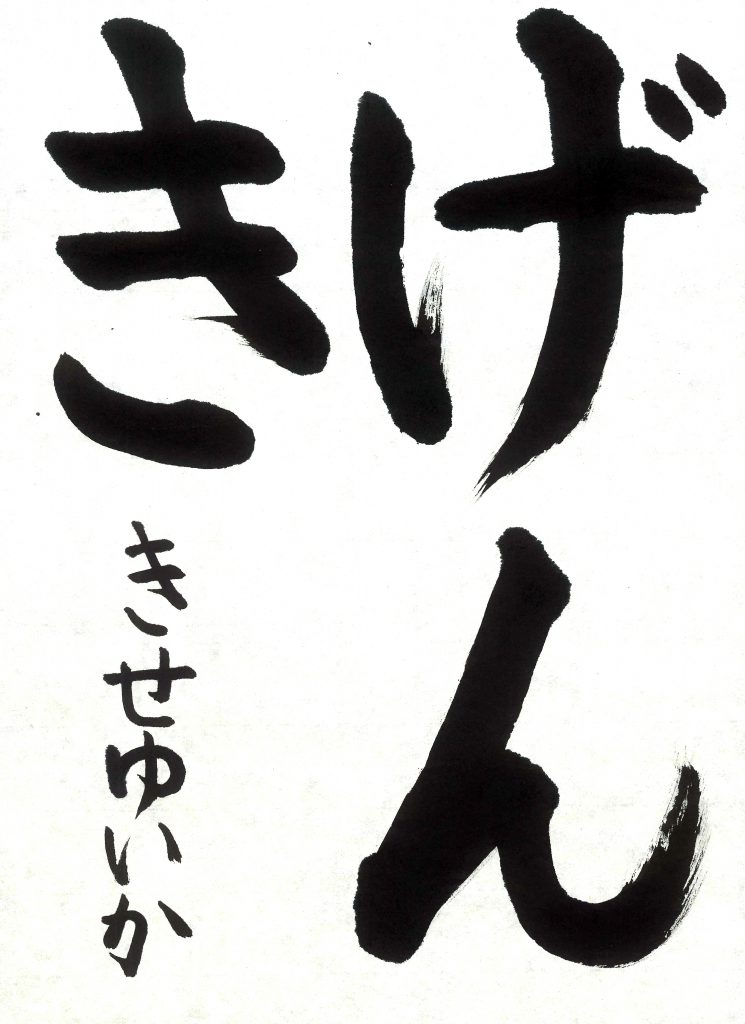 げんき
きせゆいか